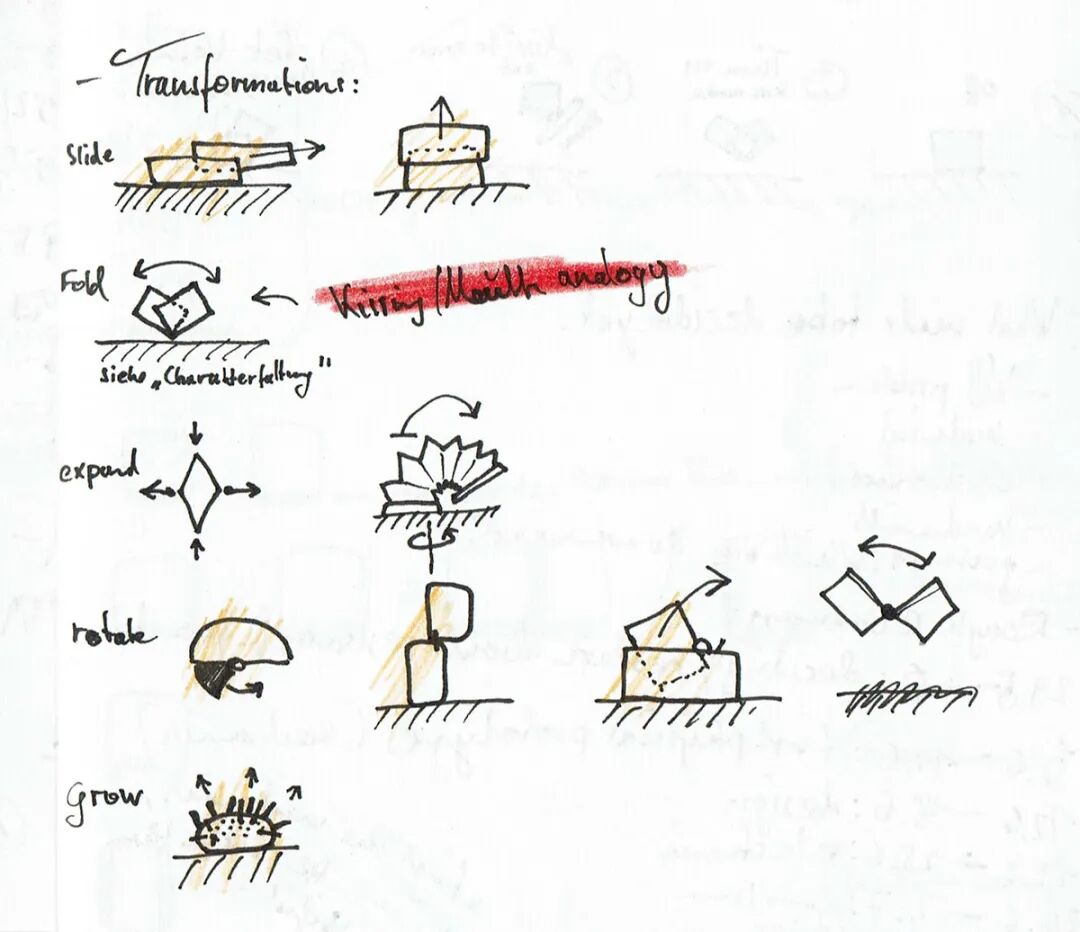 - Transformations:
slide
Fold
Kissing/Mouth analogy
siehe „Charakterfaltung"
expand
rotate
Grow